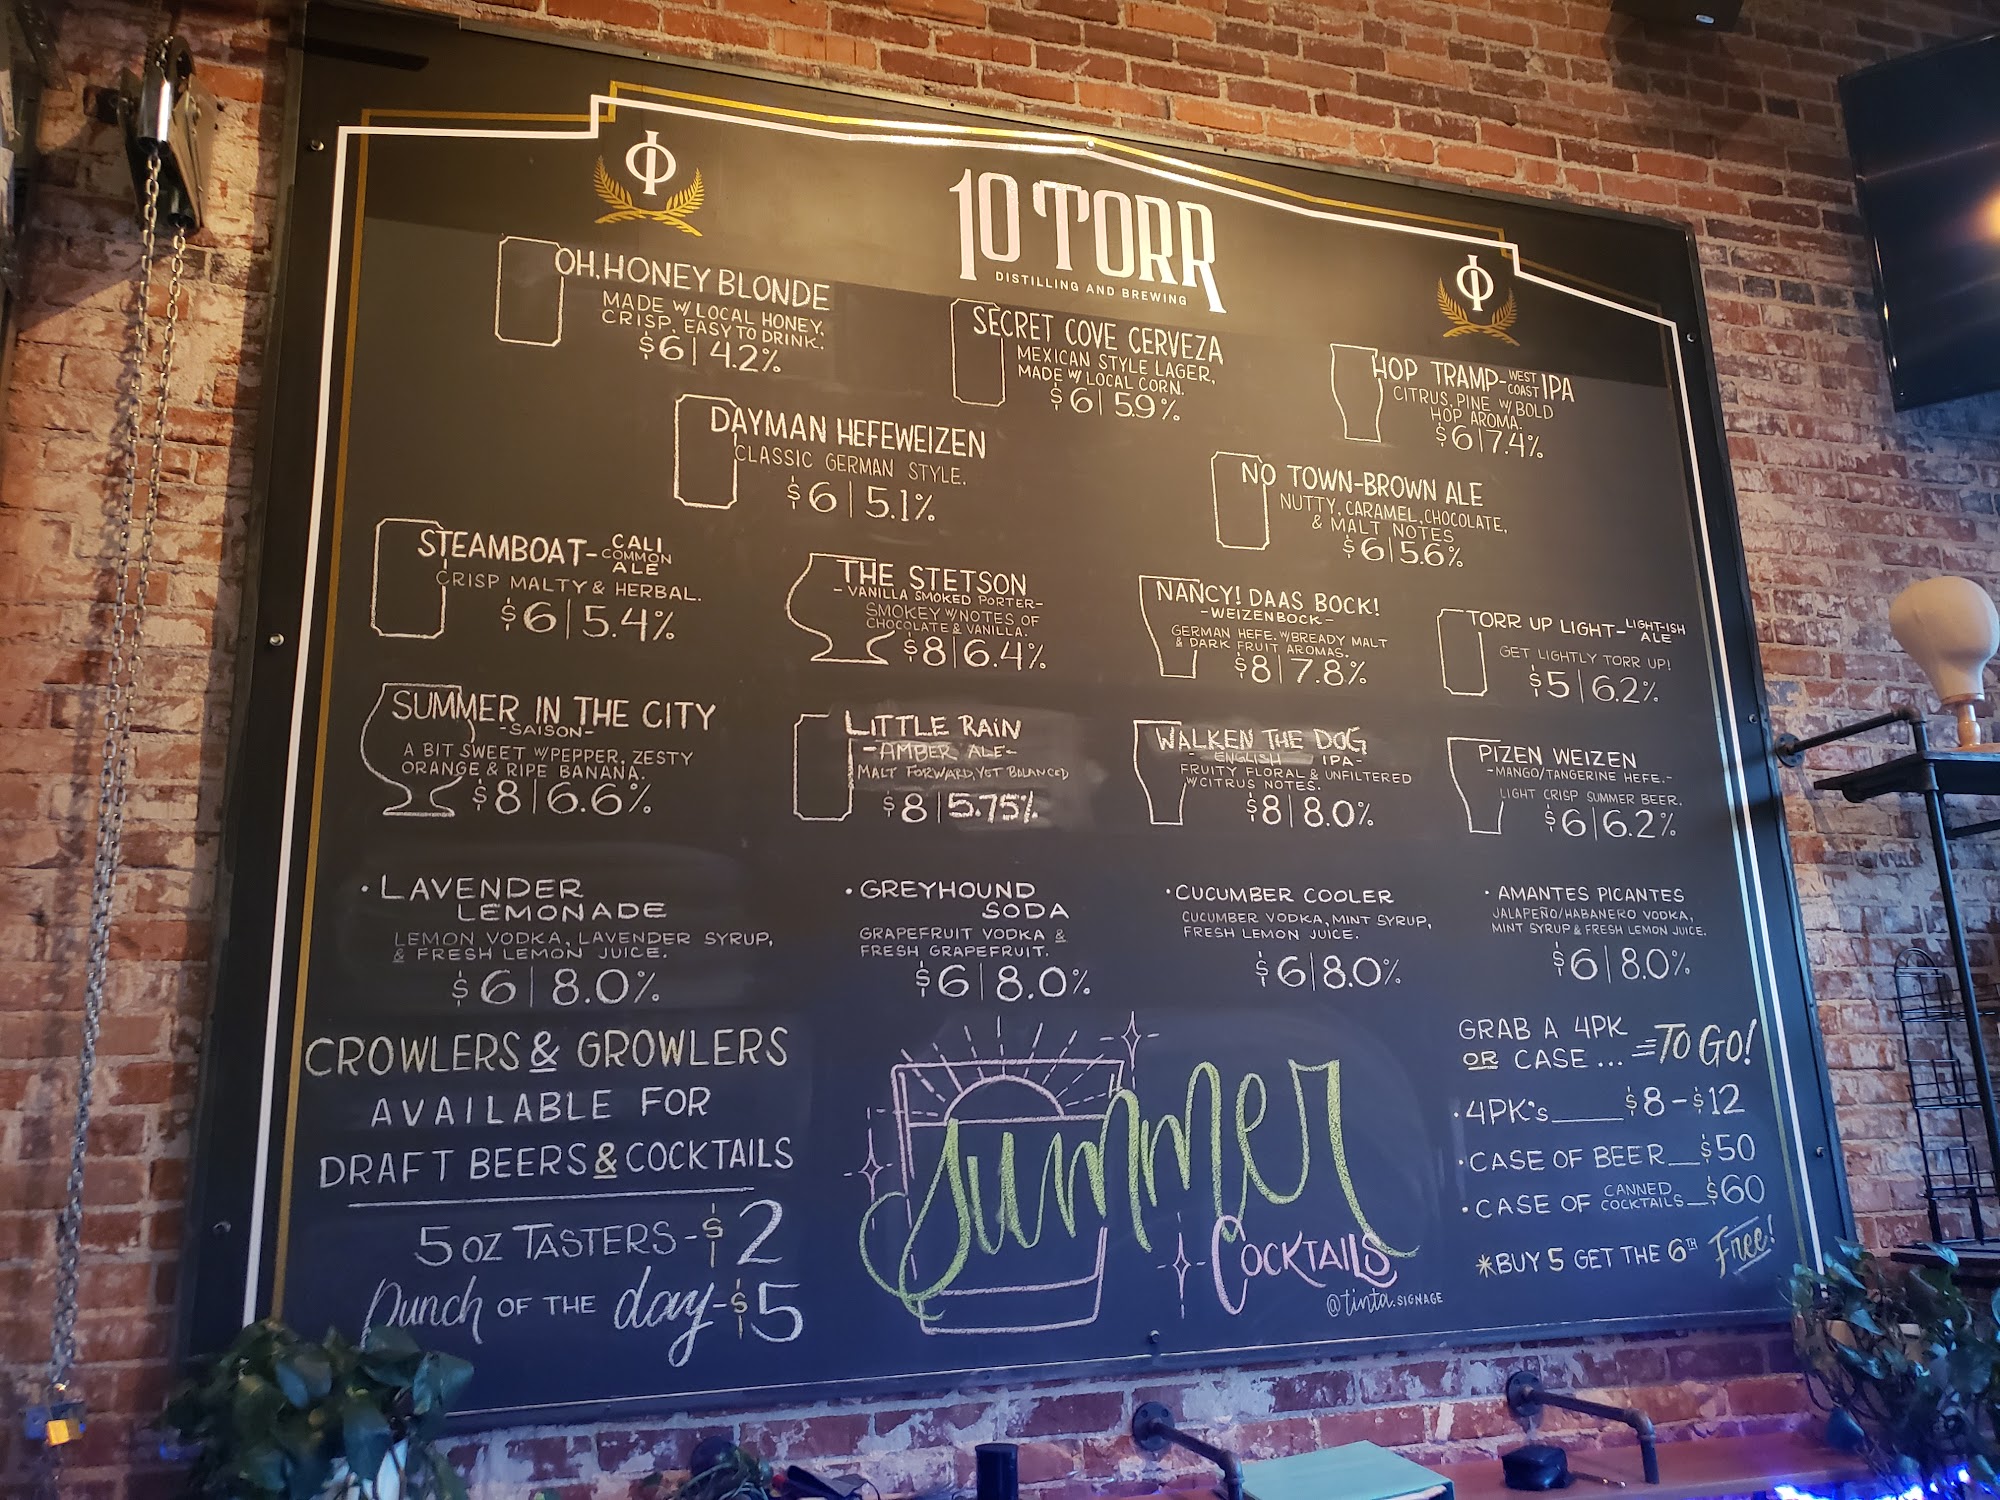 10 TORR
DISTILLING AND BREWING
OH, HONEY BLONDE
MADE W/ LOCAL HONEY.
CRISP, EASY TO DRINK.
$6 | 4.2%
SECRET COVE CERVEZA
MEXICAN STYLE LAGER,
MADE W/ LOCAL CORN.
$6 | 5.9%
HOP TRAMP - WEST COAST IPA
CITRUS, PINE W/ BOLD
HOP AROMA.
$6 | 7.4%
DAYMAN HEFEWEIZEN
CLASSIC GERMAN STYLE.
$6 | 5.1%
NO TOWN - BROWN ALE
NUTTY, CARAMEL, CHOCOLATE,
& MALT NOTES
$6 | 5.6%
STEAMBOAT - CALI COMMON ALE
CRISP MALTY & HERBAL.
$6 | 5.4%
THE STETSON
- VANILLA SMOKED PORTER -
SMOKEY W/ NOTES OF
CHOCOLATE & VANILLA.
$8 | 6.4%
NANCY! DAAS BOCK!
- WEIZENBOCK -
GERMAN HEFE. W/ BREADY MALT
& DARK FRUIT AROMAS.
$8 | 7.8%
TORR UP LIGHT - LIGHT-ISH ALE
GET LIGHTLY TORR UP!
$5 | 6.2%
SUMMER IN THE CITY
- SAISON -
A BIT SWEET W/ PEPPER, ZESTY
ORANGE & RIPE BANANA.
$8 | 6.6%
LITTLE RAIN
- AMBER ALE -
MALT FORWARD, YET BALANCED
$8 | 5.75%
WALKEN THE DOG
- ENGLISH IPA -
FRUITY FLORAL & UNFILTERED
W/ CITRUS NOTES.
$8 | 8.0%
PIZEN WEIZEN
- MANGO/TANGERINE HEFE. -
LIGHT CRISP SUMMER BEER.
$6 | 6.2%
· LAVENDER
LEMONADE
LEMON VODKA, LAVENDER SYRUP,
& FRESH LEMON JUICE.
$6 | 8.0%
· GREYHOUND
SODA
GRAPEFRUIT VODKA &
FRESH GRAPEFRUIT.
$6 | 8.0%
· CUCUMBER COOLER
CUCUMBER VODKA, MINT SYRUP,
FRESH LEMON JUICE.
$6 | 8.0%
· AMANTES PICANTES
JALAPEÑO/HABANERO VODKA,
MINT SYRUP & FRESH LEMON JUICE.
$6 | 8.0%
CROWLERS & GROWLERS
AVAILABLE FOR
DRAFT BEERS & COCKTAILS
5 OZ TASTERS - $2
Punch OF THE day - $5
Summer
COCKTAILS
@tinta.SIGNAGE
GRAB A 4PK
OR CASE ... TO GO!
· 4PK's ____ $8 - $12
· CASE OF BEER __ $50
· CASE OF CANNED COCKTAILS __ $60
*BUY 5 GET THE 6TH Free!